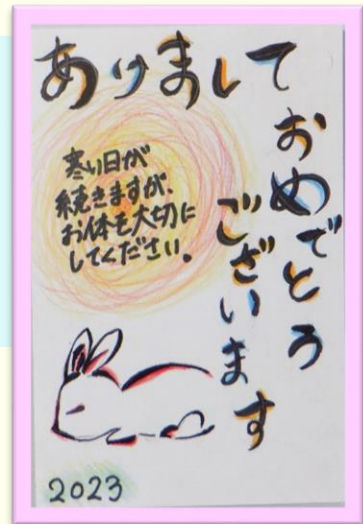 あけまして
おめでとう
ございます
寒い日が
続きますが、
お体を大切に
してください。
2023